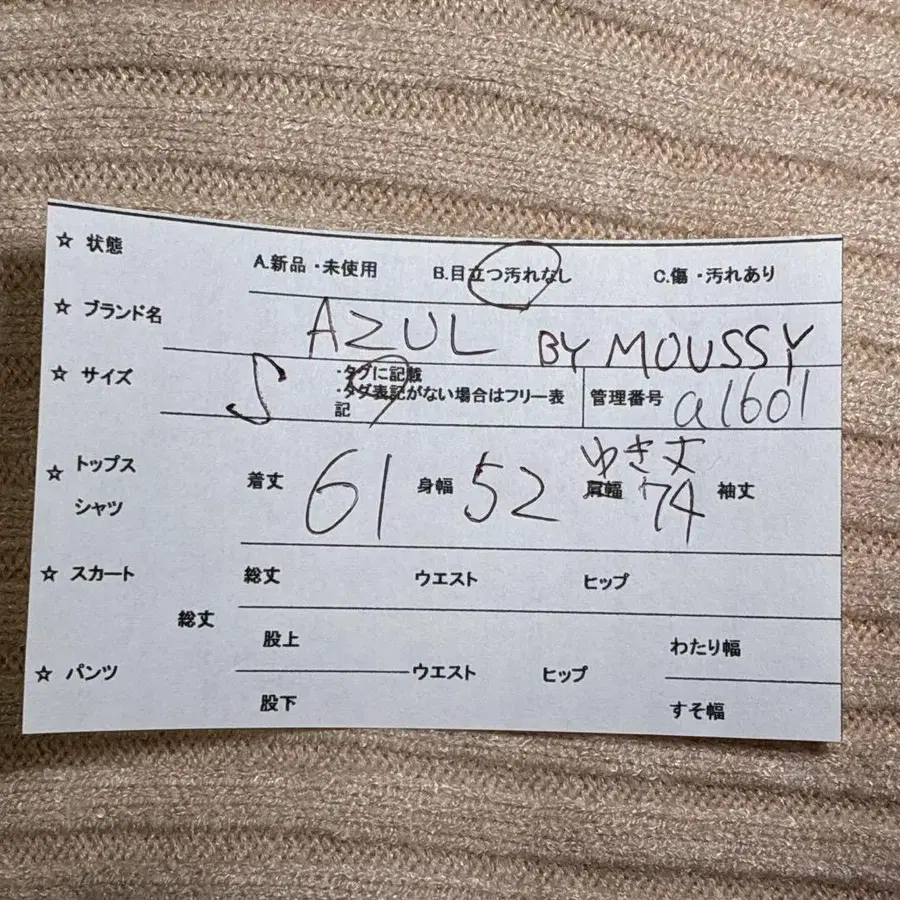 ☆ 状態 A.新品・未使用 B.目立つ汚れなし C.傷・汚れあり
☆ ブランド名 AZUL BY MOUSSY
☆ サイズ S ・タグに記載
・タグ表記がない場合はフリー表記
管理番号 a1601
☆ トップス シャツ 着丈 61 身幅 52 ゆき丈 肩幅 74 袖丈
☆ スカート 総丈 ウエスト ヒップ
☆ パンツ 総丈 股上 股下 ウエスト ヒップ わたり幅 すそ幅